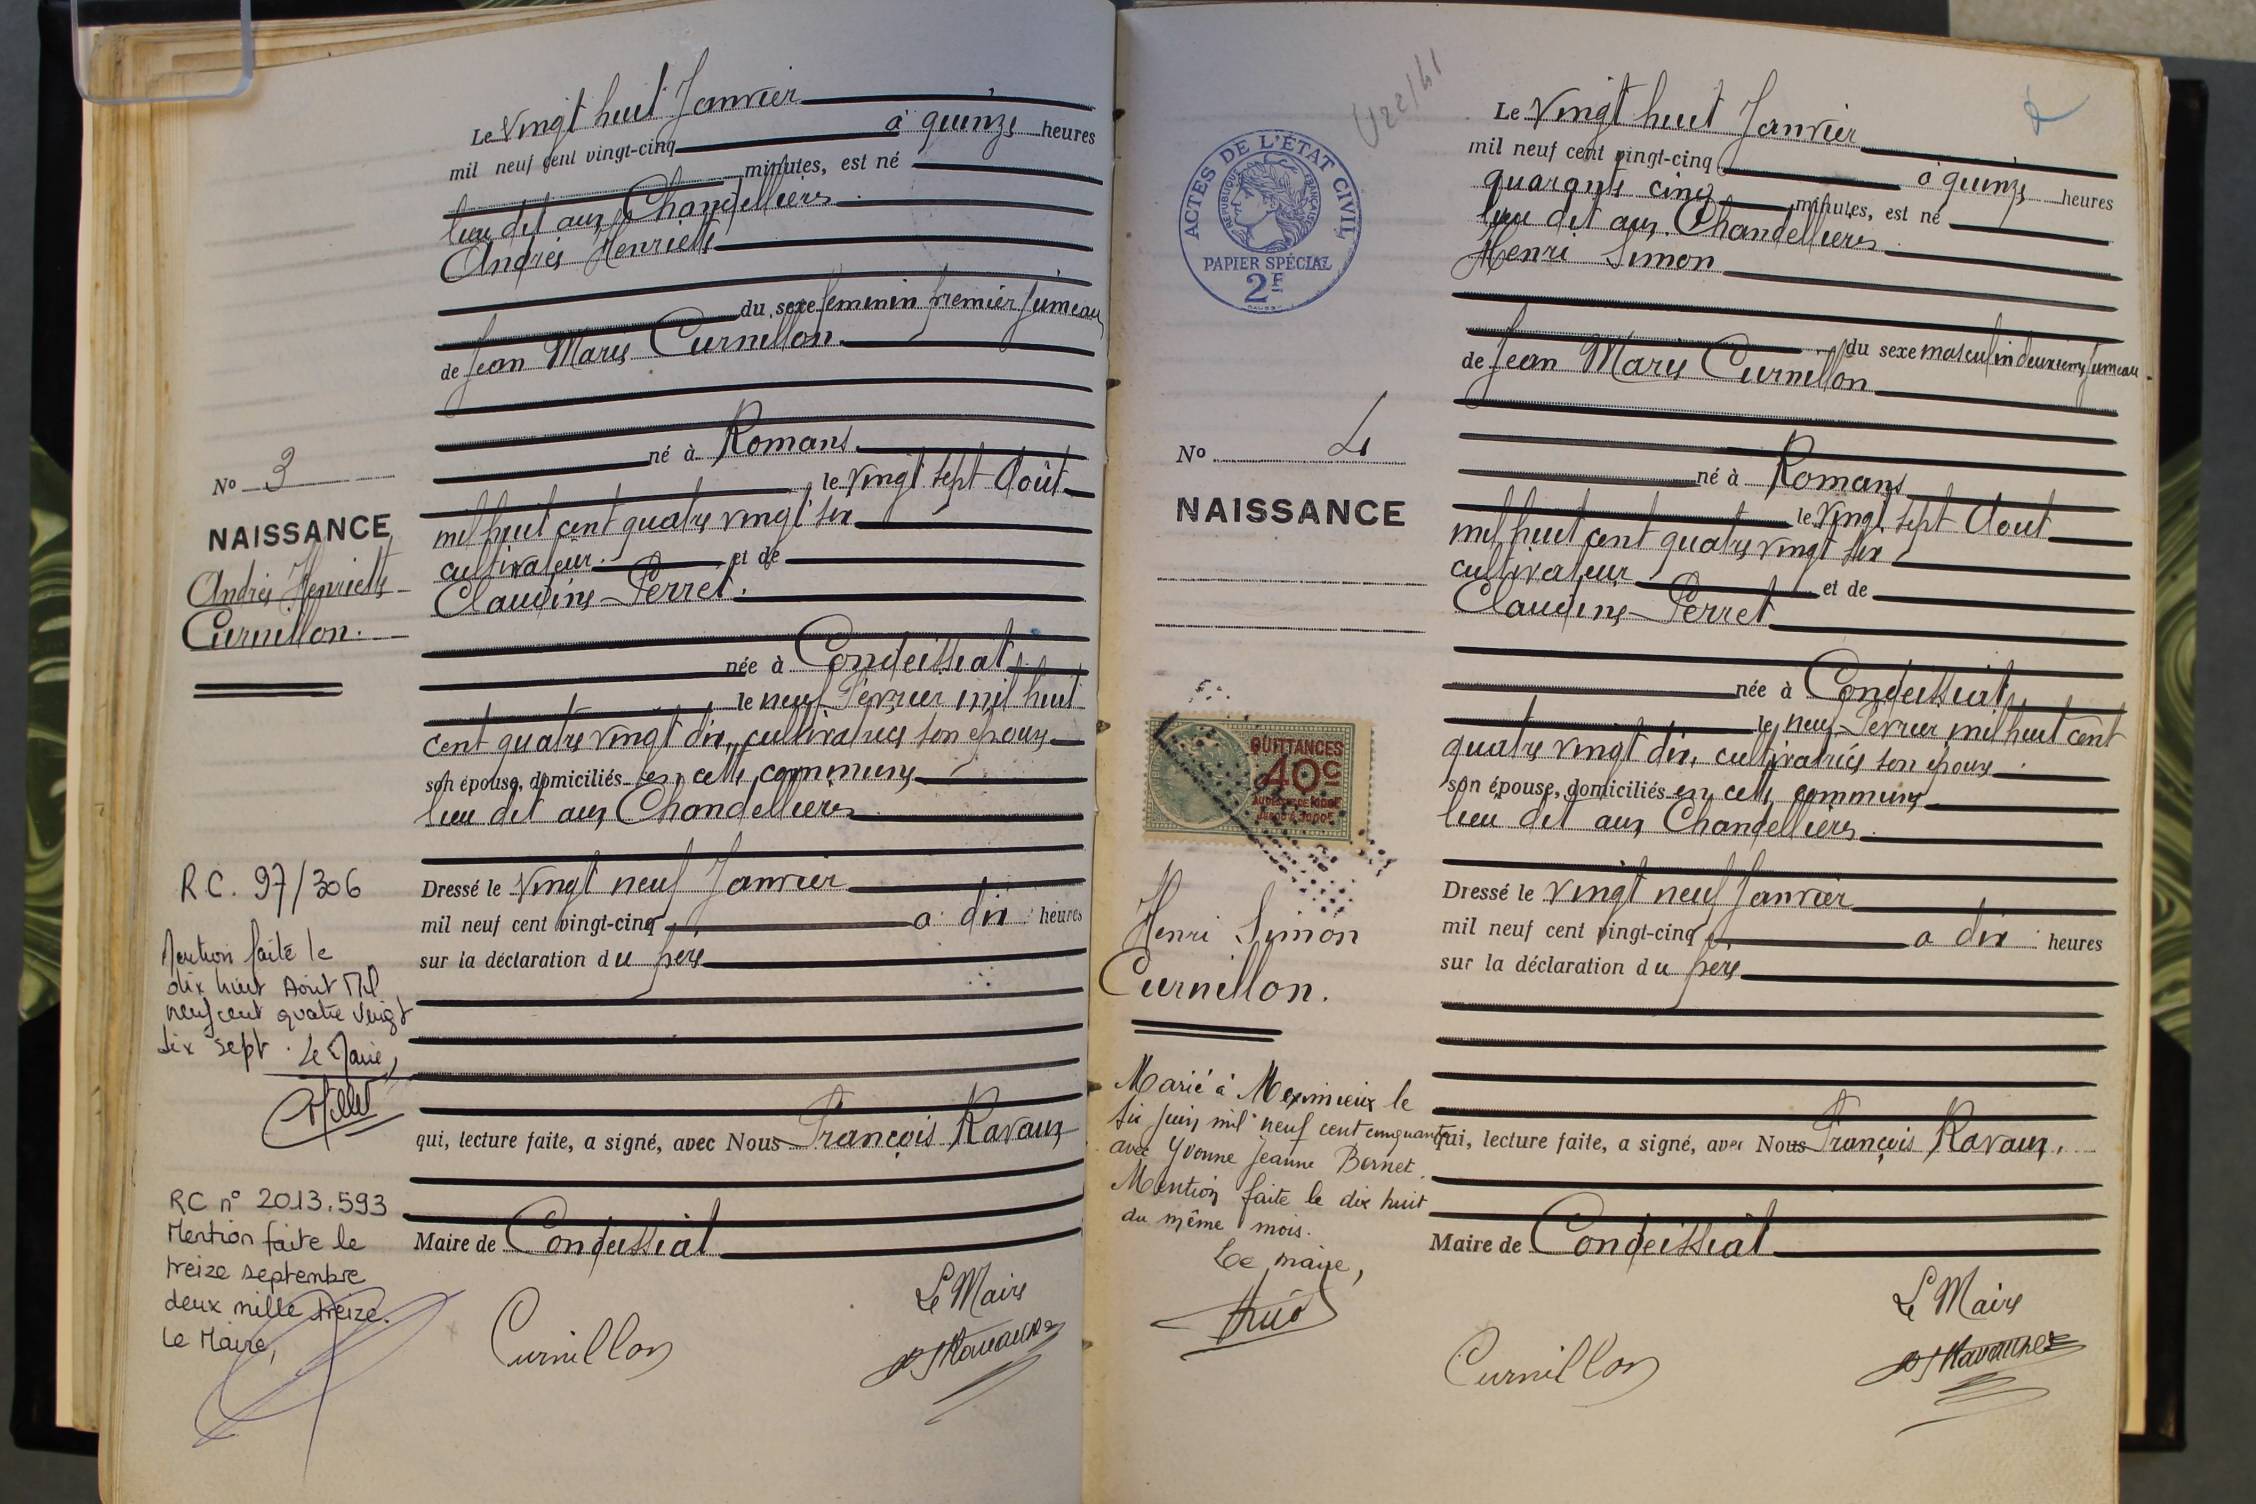 Le vingt huit Janvier
mil neuf cent vingt-cinq à quinze heures
minutes, est né
lieu dit aux Chandelliers
Andrée Henriette
du sexe feminin premier jumeau
de Jean Marie Curnillon
né à Romans
le vingt sept Août
mil huit cent quatre vingt six
cultivateur et de
Claudine Perret
née à Condeissiat
le neuf Février mil huit
cent quatre vingt dix, cultivatrice son épouse
son épouse, domiciliés en cette commune
lieu dit aux Chandelliers
Dressé le vingt neuf Janvier
mil neuf cent vingt-cinq à dix heures
sur la déclaration du père
qui, lecture faite, a signé, avec Nous François Ravaux
Maire de Condeissiat
Le Maire
Curnillon
No 3
NAISSANCE
Andrée Henriette
Curnillon.
R.C. 97/306
Mention faite le
dix huit Aout Mil
neuf cent quatre vingt
dix sept. Le Maire,
RC n° 2013.593
Mention faite le
treize septembre
deux mille treize.
Le Maire,
ACTES DE L'ÉTAT CIVIL
RÉPUBLIQUE FRANÇAISE
PAPIER SPÉCIAL
2F
No 4
NAISSANCE
QUITTANCES
40c
Henri Simon
Curnillon.
Marié à Meximieux le
six juin mil neuf cent cinquante
avec Yvonne Jeanne Bernet.
Mention faite le dix huit
du même mois.
Le maire,
Le vingt huit Janvier
mil neuf cent vingt-cinq à quinze heures
quarante cinq minutes, est né
lieu dit aux Chandelliers
Henri Simon
du sexe masculin deuxième jumeau
de Jean Marie Curnillon
né à Romans
le vingt sept Août
mil huit cent quatre vingt six
cultivateur et de
Claudine Perret
née à Condeissiat
le neuf Février mil huit cent
quatre vingt dix, cultivatrice son épouse
son épouse, domiciliés en cette commune
lieu dit aux Chandelliers
Dressé le vingt neuf Janvier
mil neuf cent vingt-cinq à dix heures
sur la déclaration du père
qui, lecture faite, a signé, avec Nous François Ravaux
Maire de Condeissiat
Le Maire
Curnillon